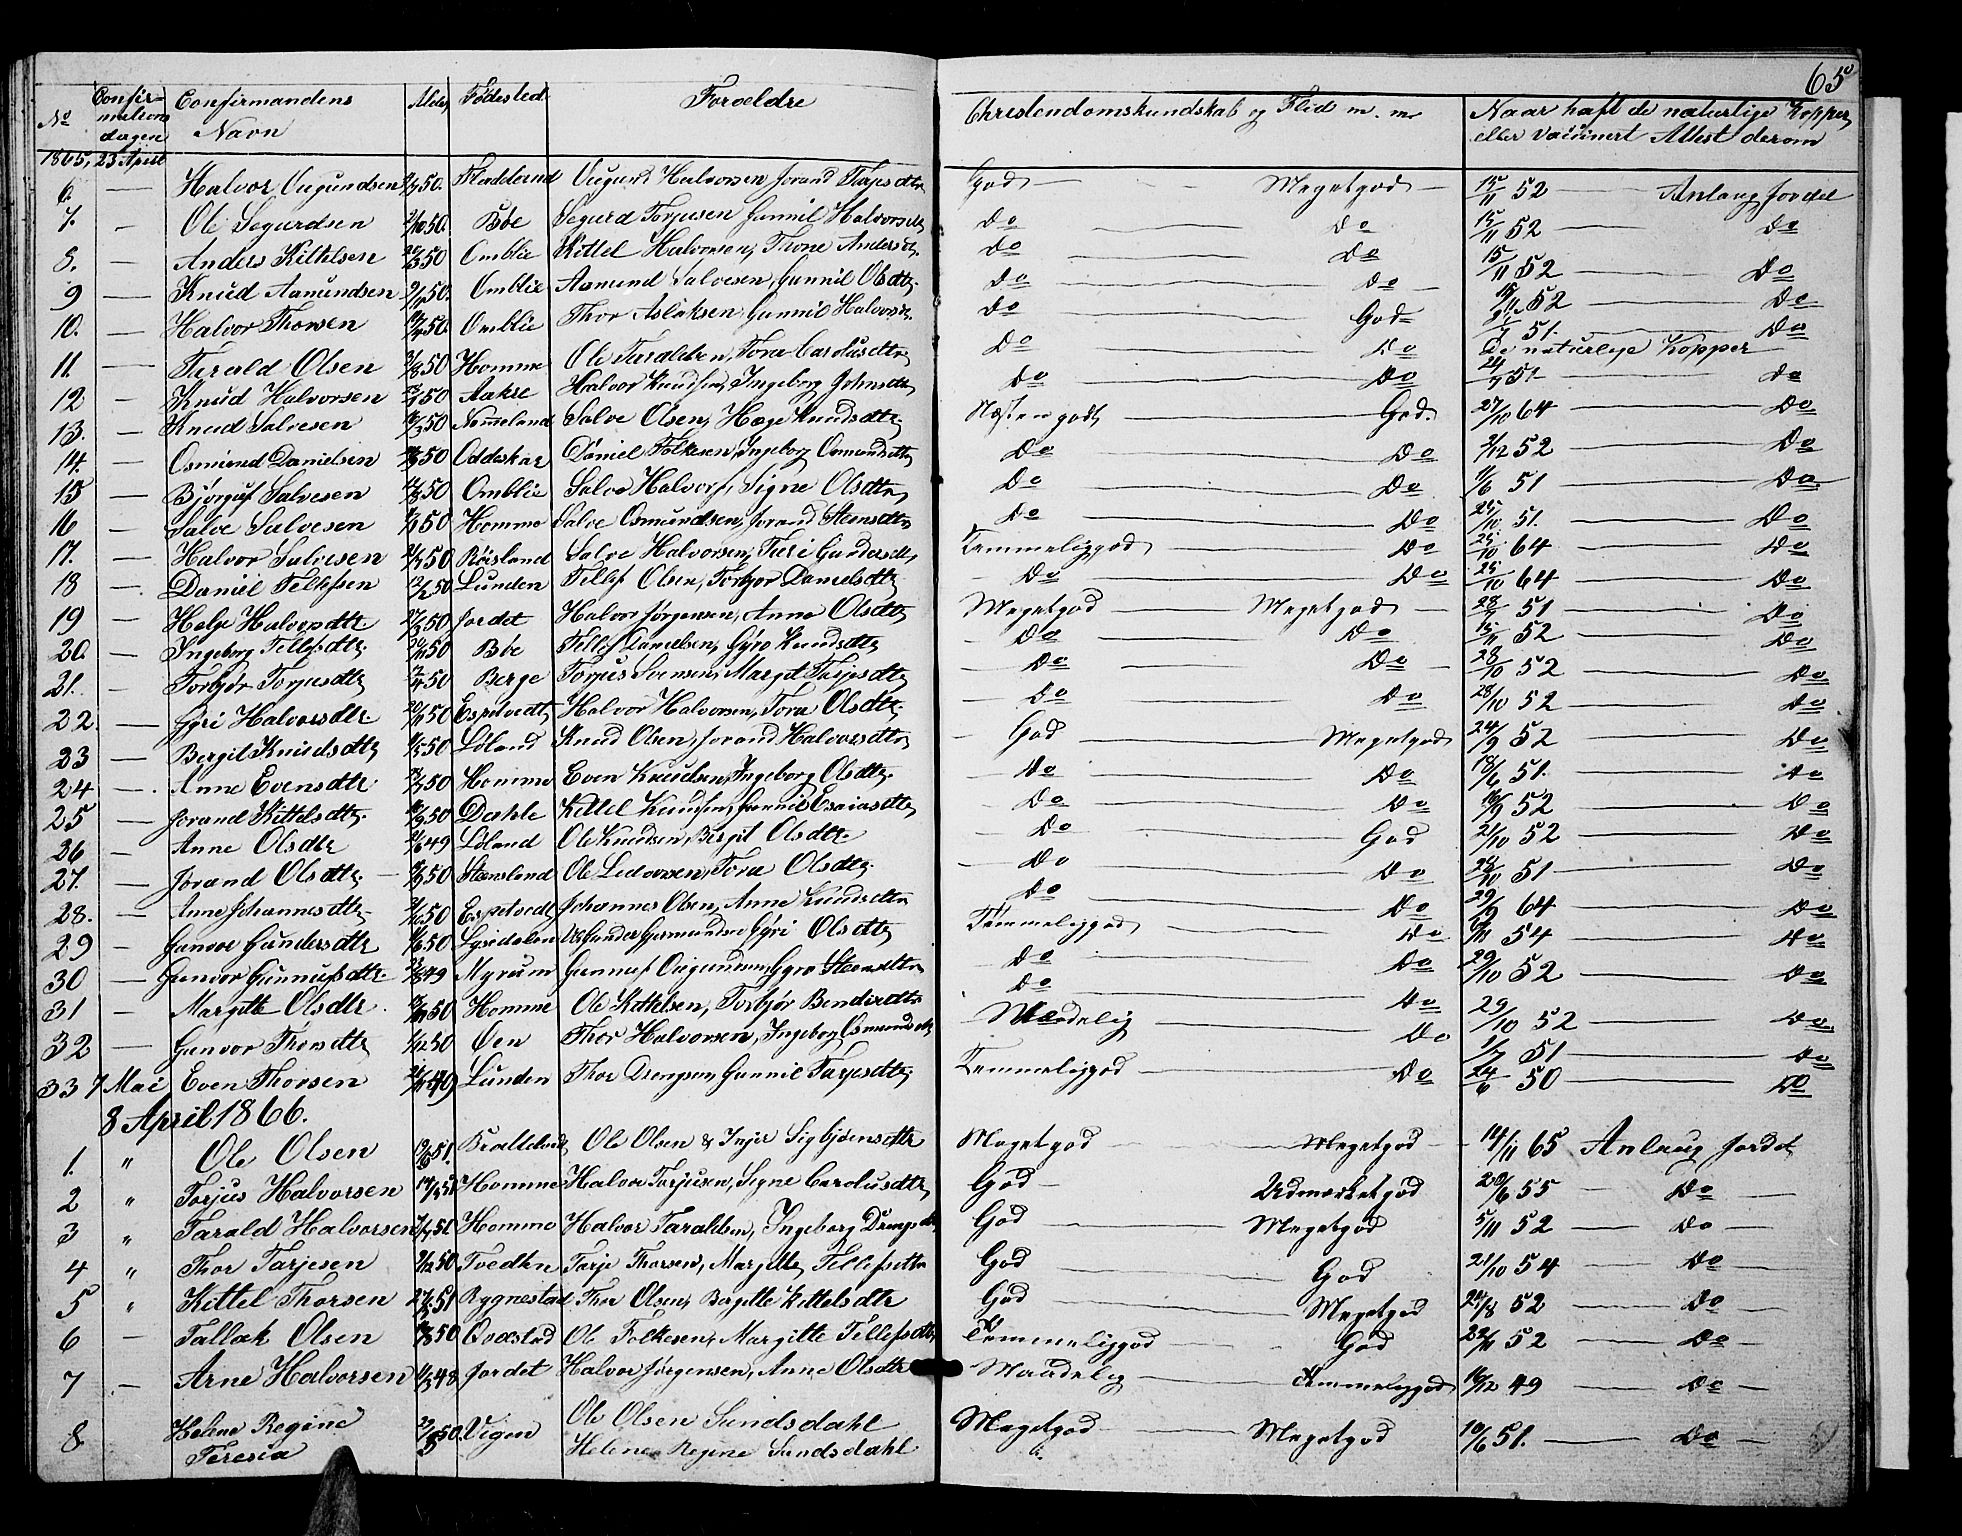 65
No Confirmations dagen Confirmandens Navn Alder Fødested Foroeldre Christendomskundskab og Flid m. m. Naar haft de naturlige Kopper eller vaccinert Attest derom
1865, 23 April
6. — Halvor Augundsen 50. Augund Halvorsen Jorand God — Megetgod — 15/11 52 — Anlaug Jordet
7. — Ole Segurdsen 50. Bøe Segurd Torjusen Gunnil Halvorsdtr Do — Do 15/11 52 — Do
8. — Anders Kittelsen 50 Omblie Kittel Halvorsen, Thone Andersdtr Do — Do 15/11 52 — Do
9 — Knud Aamundsen 50. Omblie Aamund Salvesen, Gunnil Olsdtr. Do — Do — 15/11 52 — Do
10. — Halvor Thorsen 50. Omblie Thor Aslaksen Gunnil Halvorsdtr. Do — God 51. — Do
11. — Tarald Olsen 50 Homme Ole Taraldsen, Tora Carolusdtr Do — Do De naturlige Kopper
12 — Knud Halvorsen 50 Aakre Halvor Knudsen, Ingeborg Johnsdtr Do — Do 51 — Do
13. — Knud Salvesen 50 Nomeland Salve Olsen, Hæge Knudsdtr. Næsten godt — God. 27/10 64 — Do
14. — Osmund Danielsen 50 Oddeskar Daniel Folkesen, Ingeborg Osmundsdtr Do — Do 2/12 52 — Do
15 — Bjørguf Salvesen 50 Omblie Salve Halvors, Signe Olsdtr Do — Do 51 — Do
16 — Salve Salvesen 50 Homme Salve Osmundsen, Jorand Steensdtr Do — Do 25/10 51. — Do
17. — Halvor Salvesen 50 Røisland Salve Halvorsen, Turi Gundersdtr Temmeliggod — Do 25/10 64 — Do
18 — Daniel Tellefsen 50 Lunden Tellef Olsen, Torbjør Danielsdtr — Do — Do 25/10 64 — Do
19 — Helge Halvorsdtr. 50 Jordet Halvor Jørgensen, Anne Olsdtr Megetgod — Megetgod — 51 — Do
20. — Ingeborg Tellefsdtr. 50 Bøe Tellef Danielsen, Gyro Knudsdtr — Do — Do 15/11 52 — Do
21. — Torbjør Torjusdtr 50 Berge Torjus Svensen, Margit Tarjesdtr — Do — Do — 28/10 52 — Do
22. — Gyri Halvorsdtr. 50 Espetvedt Halvor Halvorsen, Tora Olsdtr. — Do — Do 28/10 52 — Do
23 — Bergit Knudsdtr 50 Løland Knud Olsen, Jorand Halvorsdtr — God — Megetgod 24/9 52 — Do
24 — Anne Evensdtr 50 Homme Even Knudsen, Ingeborg Olsdtr. — Do — Do 18/6 51. — Do
25 — Jorand Kittelsdtr. 50 Dahle Kittel Knudsen, Gunnil Esaiasdtr — Do — Do 52 — Do
26 — Anne Olsdtr 49 Løland Ole Knudsen, Birgit Olsdtr — Do — God 21/10 52 — Do
27. — Jorand Olsdtr — 50 Stensland Ole Ledvorsen, Tora Olsdtr. — Do — Do 28/10 51 — Do
28. — Anne Johannesdtr 50 Espetvedt Johannes Olsen, Anne Knudsdtr Do — Do 29/9 64 — Do
29 — Gunvor Gundersdtr 50 Gyri Olsdtr Temmeliggod — Do 54 — Do
30 — Gunvor Gunnufsdtr. 49 Myrum Gunnuf Augundsen, Gyro Steensdtr — Do — Do 29/10 52 — Do
31 — Margitte Olsdtr. 50 Homme Ole Kittelsen, Torbjør Bendixdtr Do — Do 29/10 52 — Do
32 — Gunvor Thorsdtr 50 Øen Thor Halvorsen, Ingeborg Osmundsdtr Maadelig — Do 1/7 51 — Do
33 7 Mai Even Thorsen 49 Lunden Thor Drengsen, Gunnil Tarjesdtr Temmeliggod — Do 24/6 50 — Do
8 April 1866.
1. " Ole Olsen 51. Ole Olsen & Inger Sigbjørnsdtr Megetgod — Megetgod — 14/11 65 Anlaug Jordet
2 " Torjus Halvorsen 51 Homme Halvor Torjusen, Signe Carolusdtr God — Udmærketgod 20/6 55 — Do —
3 " Tarald Halvorsen 51 Homme Halvor Taraldsen, Ingeborg Drengsdtr God — Megetgod 5/11 52 — Do —
4 " Thor Tarjesen 50 Tveden Tarje Thorsen, Margitte Tellefsdtr God — God 21/10 54 — Do —
5 " Kittel Thorsen 51 Rygnestad Thor Olsen, Bergitte Kittelsdtr God — Megetgod 24/8 52 — Do —
6 — Tallak Olsen 50 Ole Folkesen, Margitte Tellefsdtr. Temmeliggod — God 52 — Do —
7 — Arne Halvorsen 48 Jordet Halvor Jørgensen, Anne Olsdtr Maadelig — Temmeliggod 16/12 49 — Do —
8. Helene Regine Teresia 50. Vigen Ole Olsen Sundsdahl Helene Regine Sundsdahl Megetgod — Megetgod 10/6 51. — Do —